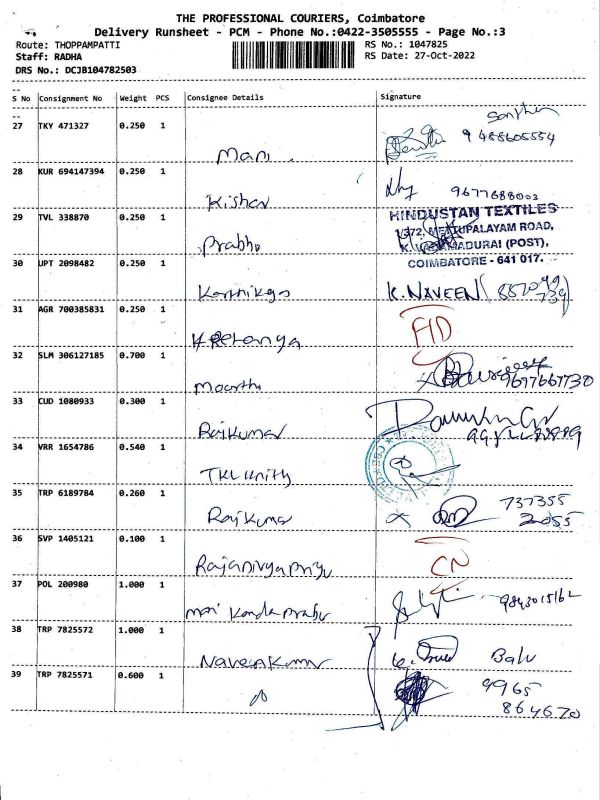 THE PROFESSIONAL COURIERS, Coimbatore
Delivery Runsheet - PCM - Phone No.:0422-3505555 - Page No.:3
Route: THOPPAMPATTI
RS No.: 1047825
Staff: RADHA
RS Date: 27-Oct-2022
DRS No.: DCJB104782503
S No Consignment No Weight PCS Consignee Details Signature
27 TKY 471327 0.250 1 Mani
28 KUR 694147394 0.250 1 Kishor 9677688003
29 TVL 338870 0.250 1 Prabhu
HINDUSTAN TEXTILES
1/372, METTUPALAYAM ROAD,
MADURAI (POST),
COIMBATORE - 641 017.
30 UPT 2098482 0.250 1 Karthikeya K. NAVEEN
31 AGR 700385831 0.250 1
32 SLM 306127185 0.700 1 Moorthi 9677667730
33 CUD 1080933 0.300 1 Rajkumar
34 VRR 1654786 0.540 1 TKL Knith
35 TRP 6189784 0.260 1 Rajkumar 737355
2055
36 SVP 1405121 0.100 1 CN
37 POL 200980 1.000 1 9843015162
38 TRP 7825572 1.000 1 Naveenkumar Balu
39 TRP 7825571 0.600 1 9965
864670